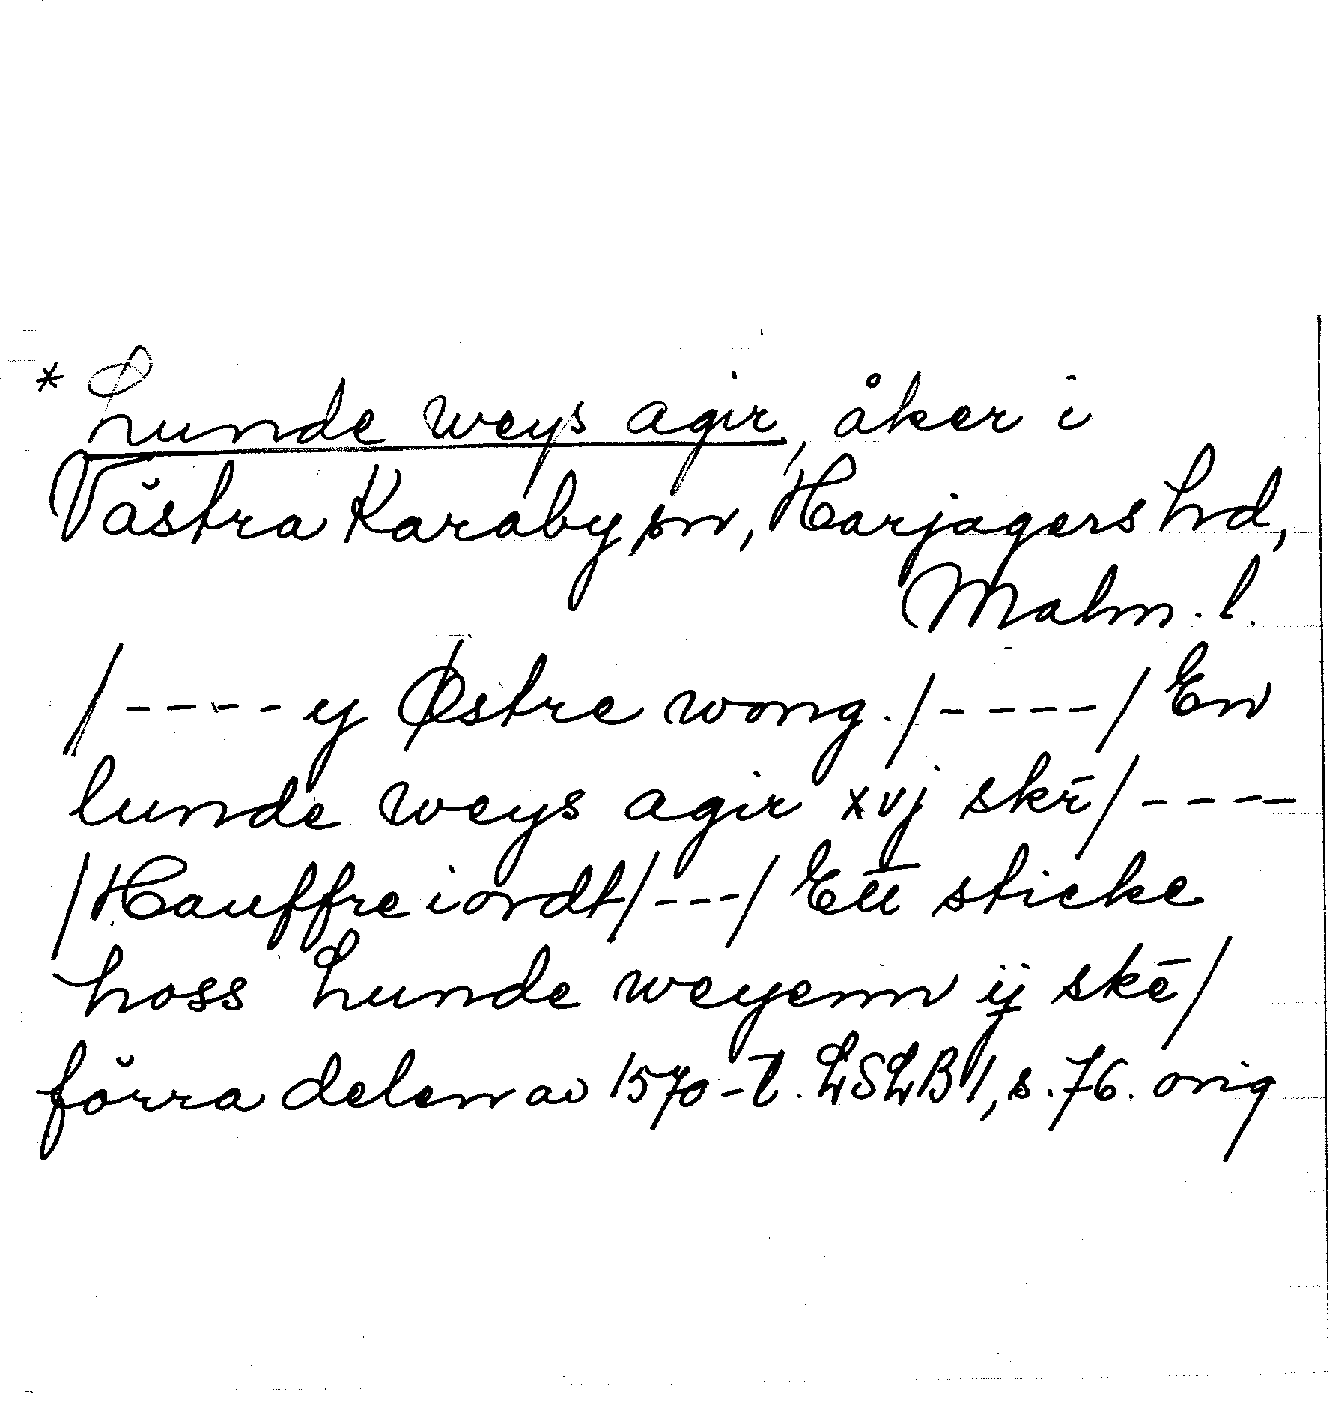 * Lunde weys agir, åker i
Västra Karaby sn, Harjagers hd,
Malm. l.
/---- y Østre wong. /----/ En
lunde weys agir xvj skr̄/----
/Hauffre iordt/---/ Ett sticke
hoss Lunde weyenn ij skē/
förra delen av 1570-t. LSLB 1, s. 76. orig